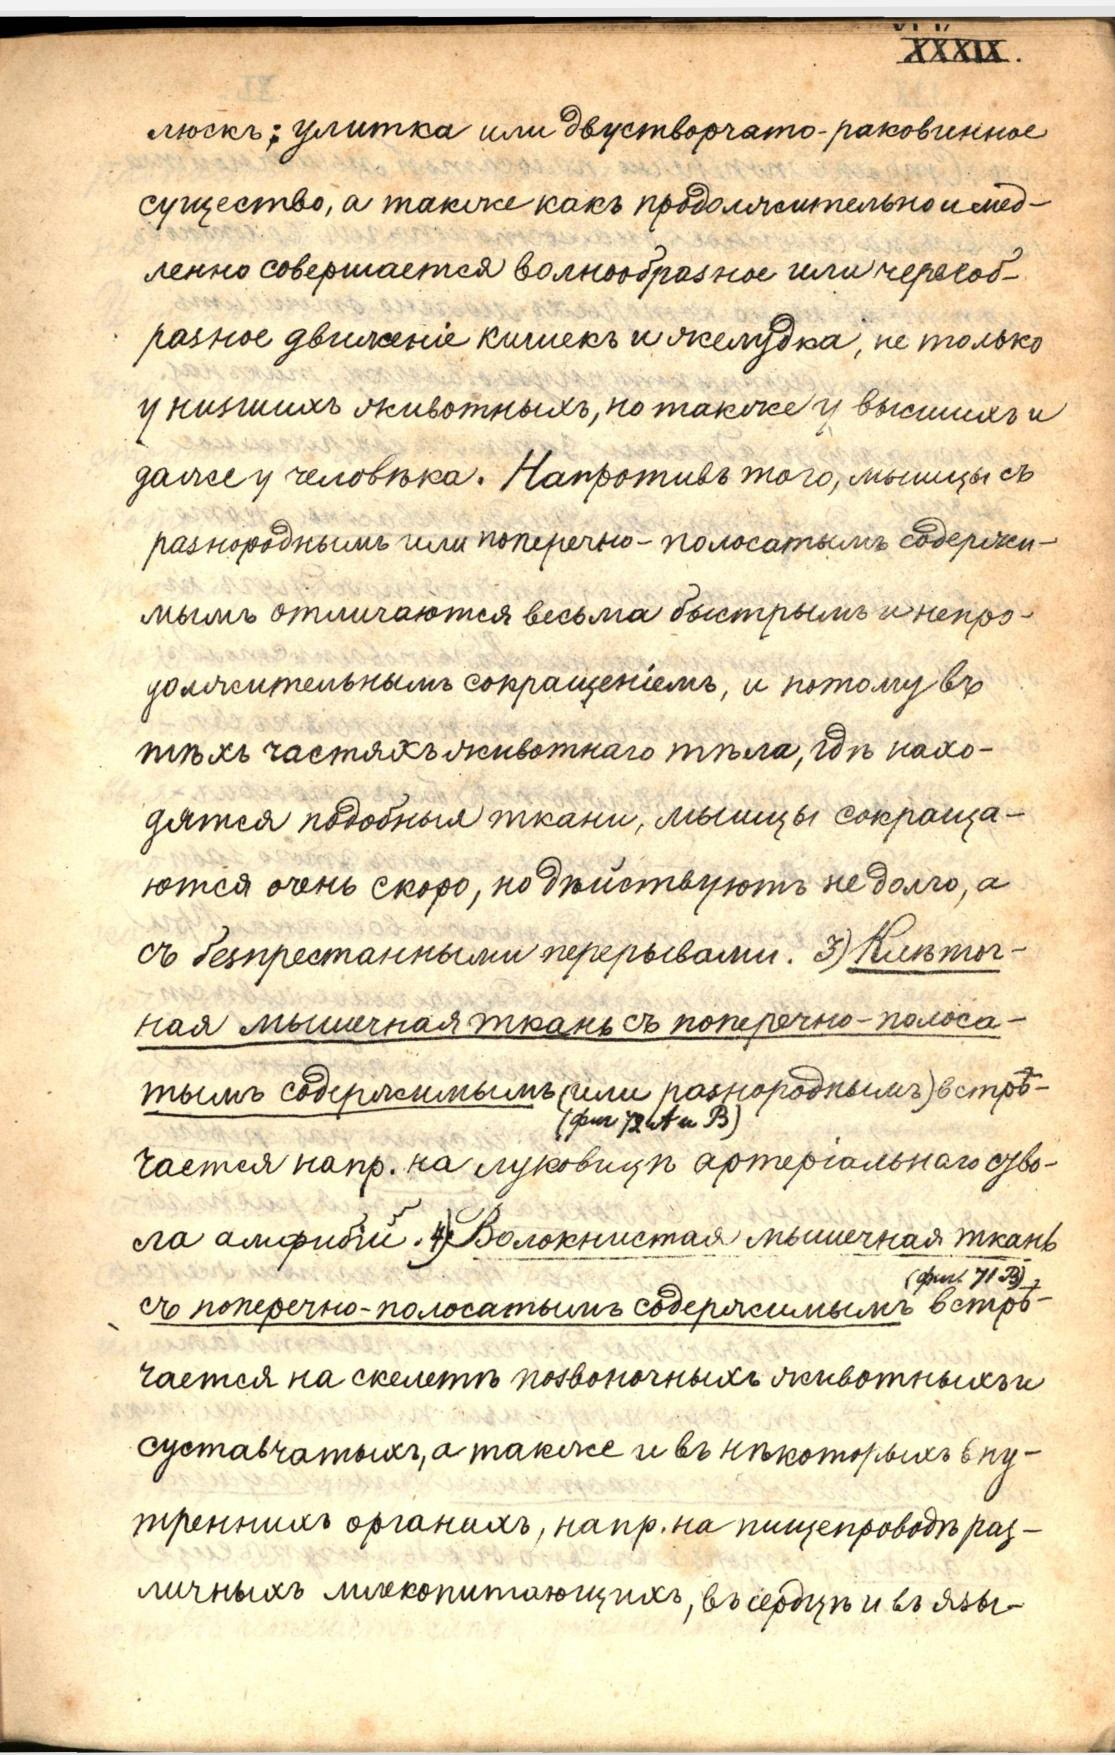 XXXIX.
люскъ; улитка или двустворчато-раковинное
существо, а также какъ продолжительно и мед-
ленно совершается волнообразное или червеоб-
разное движеніе кишекъ и желудка, не только
у низшихъ животныхъ, но также у высшихъ и
даже у человѣка. Напротивъ того, мышцы съ
разнороднымъ или поперечно-полосатымъ содержи-
мымъ отличаются весьма быстрымъ и непро-
должительнымъ сокращеніемъ, и потому въ
тѣхъ частяхъ животнаго тѣла, гдѣ нахо-
дятся подобныя ткани, мышцы сокраща-
ются очень скоро, но дѣйствуютъ не долго, а
съ безпрестанными перерывами. 3) Клѣточ-
ная мышечная ткань съ поперечно-полоса-
тымъ содержимымъ (или разнороднымъ) встрѣ-
(фиг 72 А и В)
чается напр. на луковицѣ артеріальнаго ство-
ла амфибій. 4) Волокнистая мышечная ткань
(фиг. 71 В)
съ поперечно-полосатымъ содержимымъ встрѣ-
чается на скелетѣ позвоночныхъ животныхъ и
суставчатыхъ, а также и въ нѣкоторыхъ вну-
треннихъ органихъ, напр. на пищепроводѣ раз-
личныхъ млекопитающихъ, въ сердцѣ и въ язы-